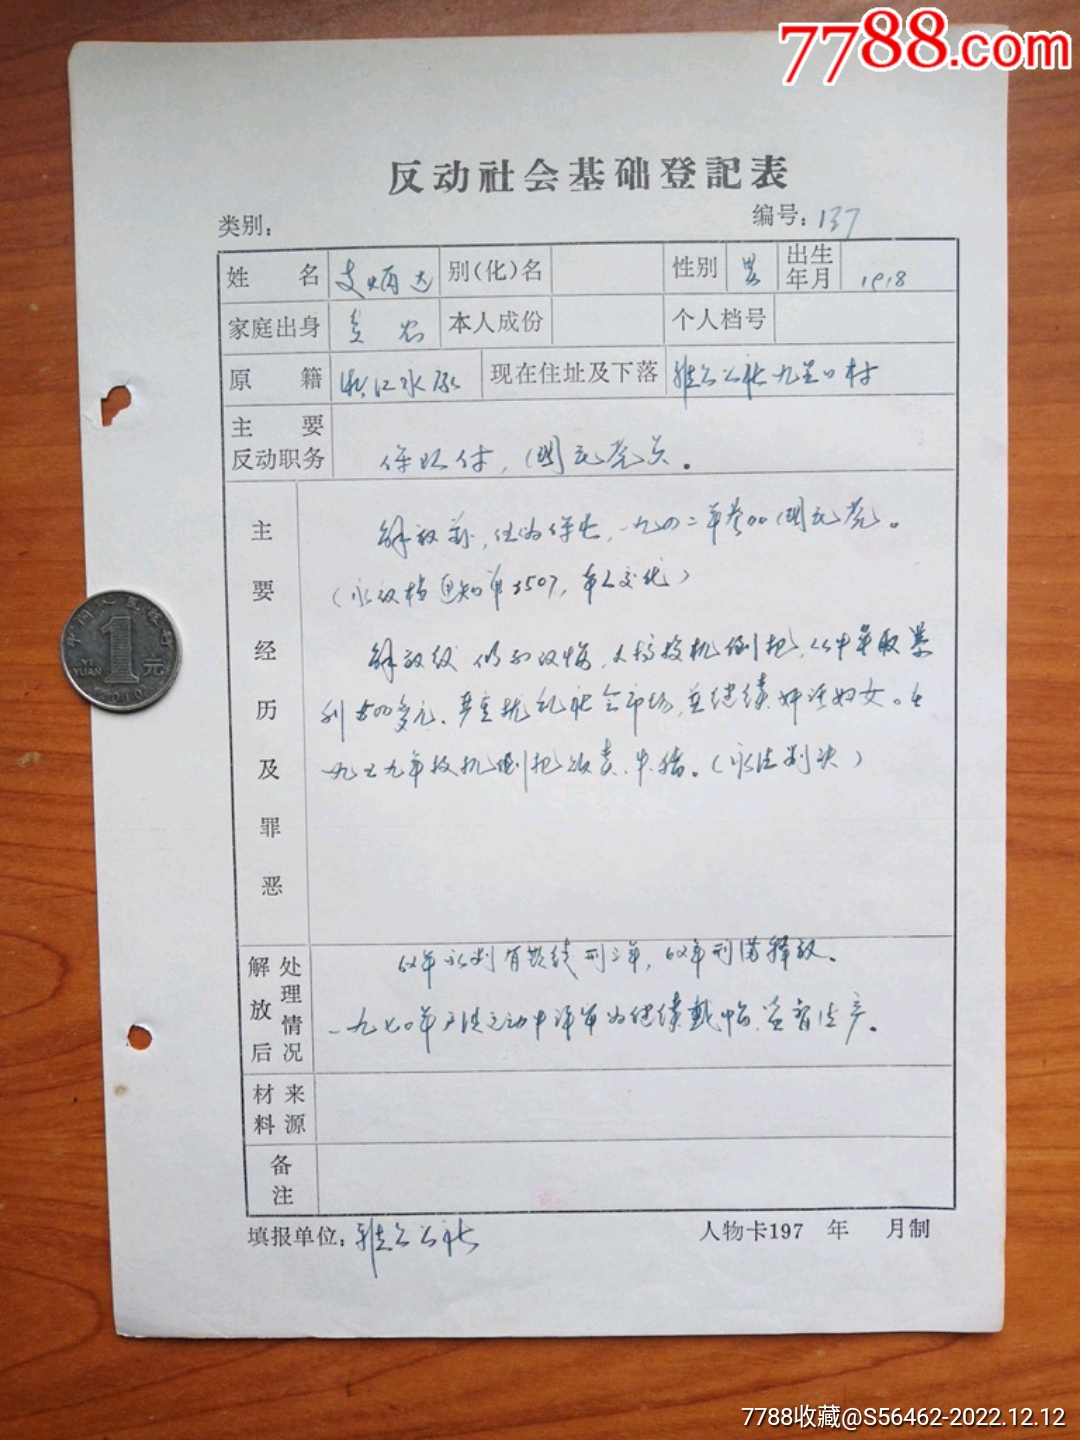 7788.com
反动社会基础登記表
类别： 编号：137
姓名 支炳 别(化)名 性别 男 出生年月 1918
家庭出身 贫农 本人成份 个人档号
原籍 浙江永康 现在住址及下落 雅公社九里口村
主要反动职务 保长，国民党员。
主要经历及罪恶
解放前，任伪保长，一九四二年参加国民党。
（永政档通知单2507，本人交代）
解放后仍不改悔，大搞投机倒把，从中牟取暴
利多元，严重扰乱社会市场，并继续奸污妇女。
年投机倒把贩卖牛猪。（永法判决）
解放后处理情况
年永判有期徒刑三年，年刑满释放。
一九七〇年运动中评审为继续戴帽，监督生产。
材料来源
备注
填报单位：雅公社 人物卡197 年 月制
中国人民银行
1
YI YUAN 元
2010
7788收藏@S56462-2022.12.12